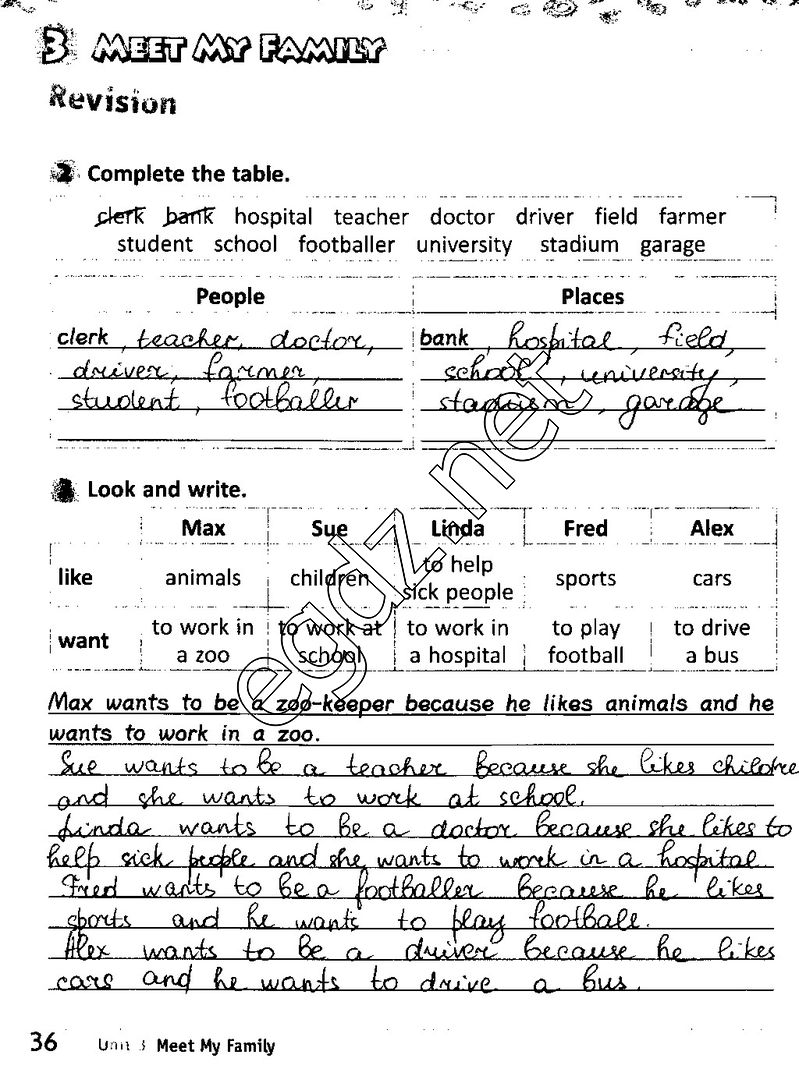 3 MEET MY FAMILY
Revision
2 Complete the table.
clerk bank hospital teacher doctor driver field farmer
student school footballer university stadium garage
People Places
clerk, teacher, doctor, bank, hospital, field,
driver, farmer, school, university,
student, footballer stadium, garage
3 Look and write.
Max Sue Linda Fred Alex
like animals children to help sick people sports cars
want to work in a zoo to work at school to work in a hospital to play football to drive a bus
Max wants to be a zoo-keeper because he likes animals and he
wants to work in a zoo.
Sue wants to be a teacher because she likes childre
and she wants to work at school.
Linda wants to be a doctor because she likes to
help sick people and she wants to work in a hospital
Fred wants to be a footballer because he likes
sports and he wants to play football.
Alex wants to be a driver because he likes
cars and he wants to drive a bus.
36 Unit 3 Meet My Family
egdz.net